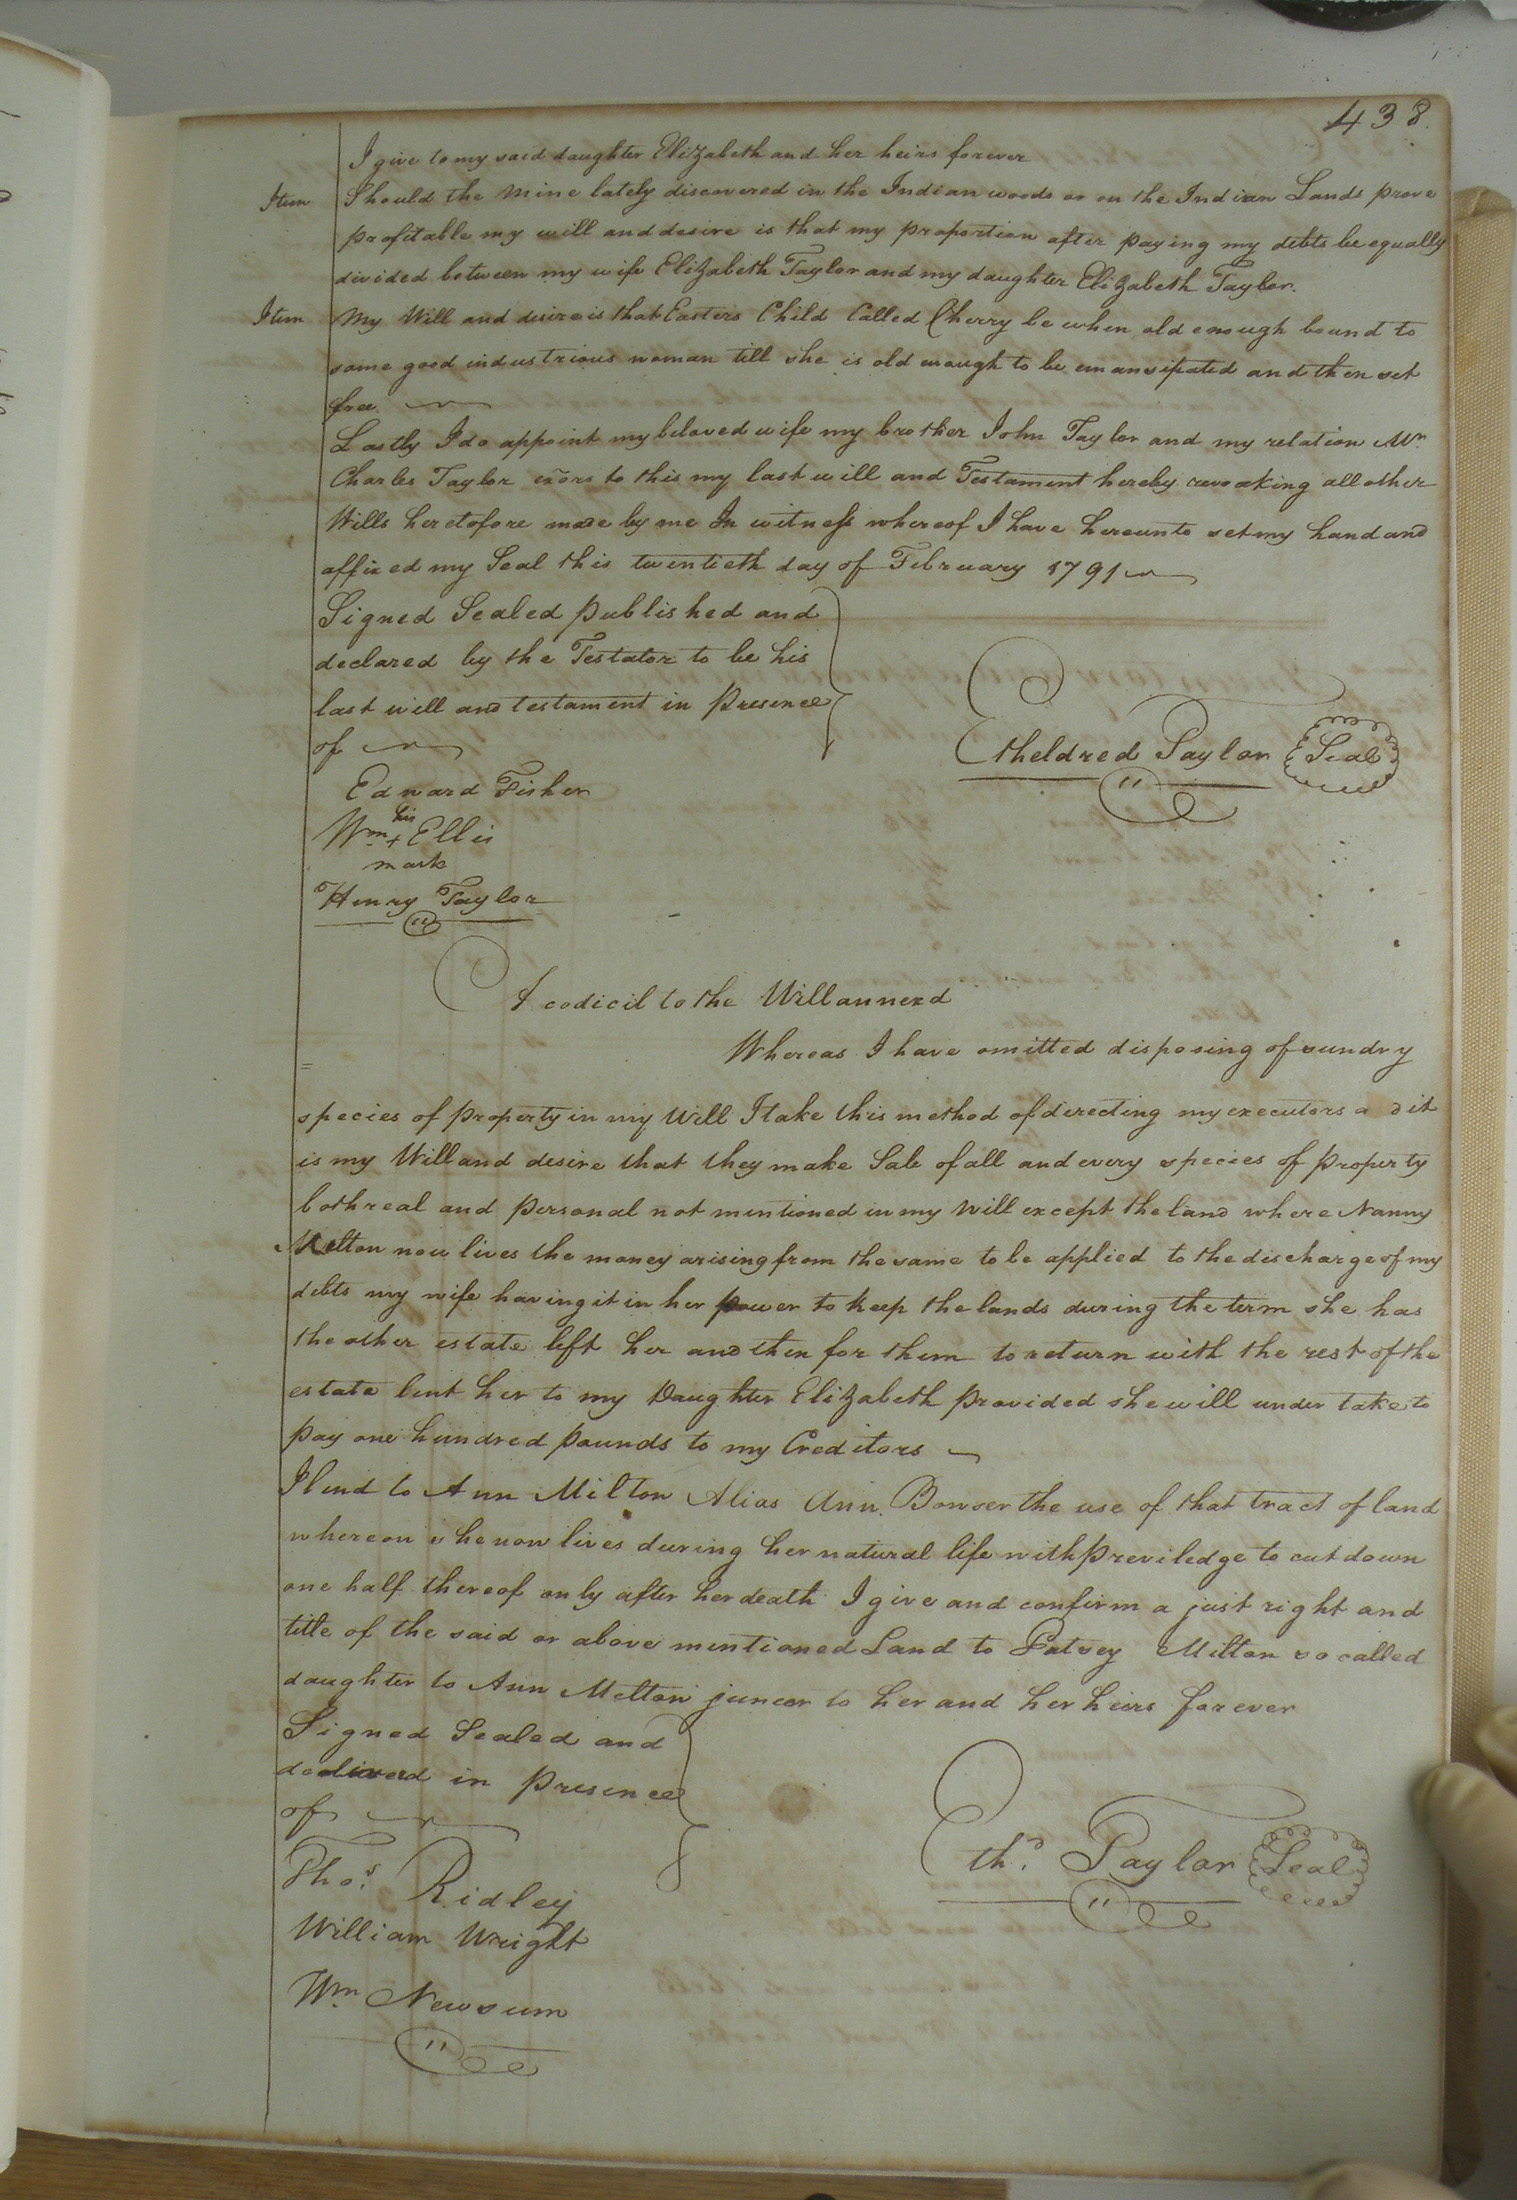 438.
I give to my said daughter Elizabeth and her heirs forever
Item Should the mine lately discovered in the Indian woods or on the Indian Lands prove
profitable my will and desire is that my proportion after paying my debts be equally
divided between my wife Elizabeth Taylor and my daughter Elizabeth Taylor.
Item My Will and desire is that Easters Child Called Cherry be when old enough bound to
some good industrious woman till she is old enough to be emansipated and then set
free
Lastly I do appoint my beloved wife my brother John Taylor and my relation Mr.
Charles Taylor exors to this my last will and Testament hereby revoaking all other
Wills heretofore made by me In witness whereof I have hereunto set my hand and
affixed my Seal this twentieth day of February 1791
Signed Sealed published and
declared by the Testator to be his
last will and testament in presence
of
Etheldred Taylor Seal
Edward Fisher
his
Wm + Ellis
mark
Henry Taylor
A codicil to the Will annexd
Whereas I have omitted disposing of sundry
species of property in my Will I take this method of directing my executors a d it
is my Will and desire that they make Sale of all and every species of property
both real and personal not mentioned in my Will except the land where Nanny
Melton now lives the money arising from the same to be applied to the discharge of my
debts my wife having it in her power to keep the lands during the term she has
the other estate left her and then for them to return with the rest of the
estate lent her to my Daughter Elizabeth provided she will under take to
pay one hundred pounds to my Creditors
I lend to Ann Milton Alias Ann Bowser the use of that tract of land
whereon she now lives during her natural life with previledge to cut down
one half thereof only after her death I give and confirm a just right and
title of the said or above mentioned Land to Patsey Milton so called
daughter to Ann Melton juneor to her and her heirs forever
Signed Sealed and
in presence
of
Ethd. Taylor Seal
Thos. Ridley
William Wright
Wm. Newsum